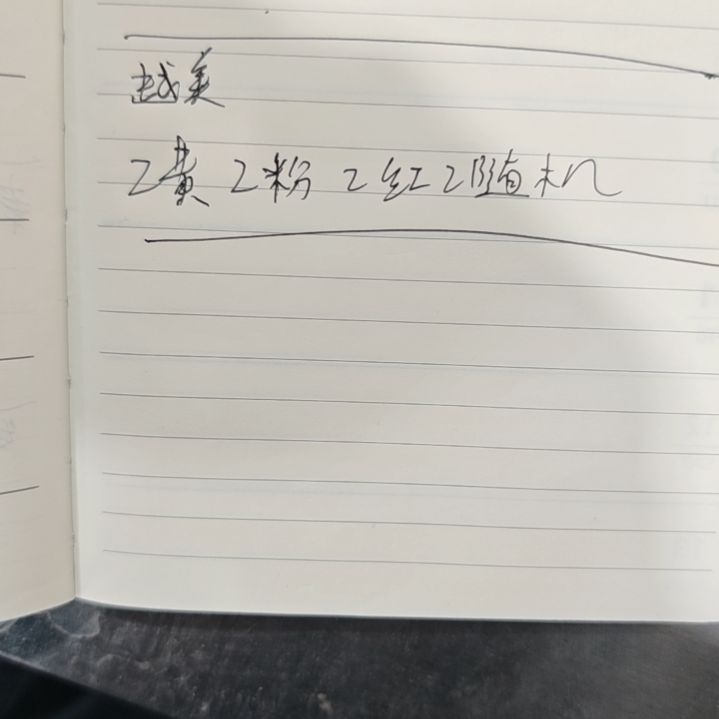 越美
2黄 2粉 2红 2随机